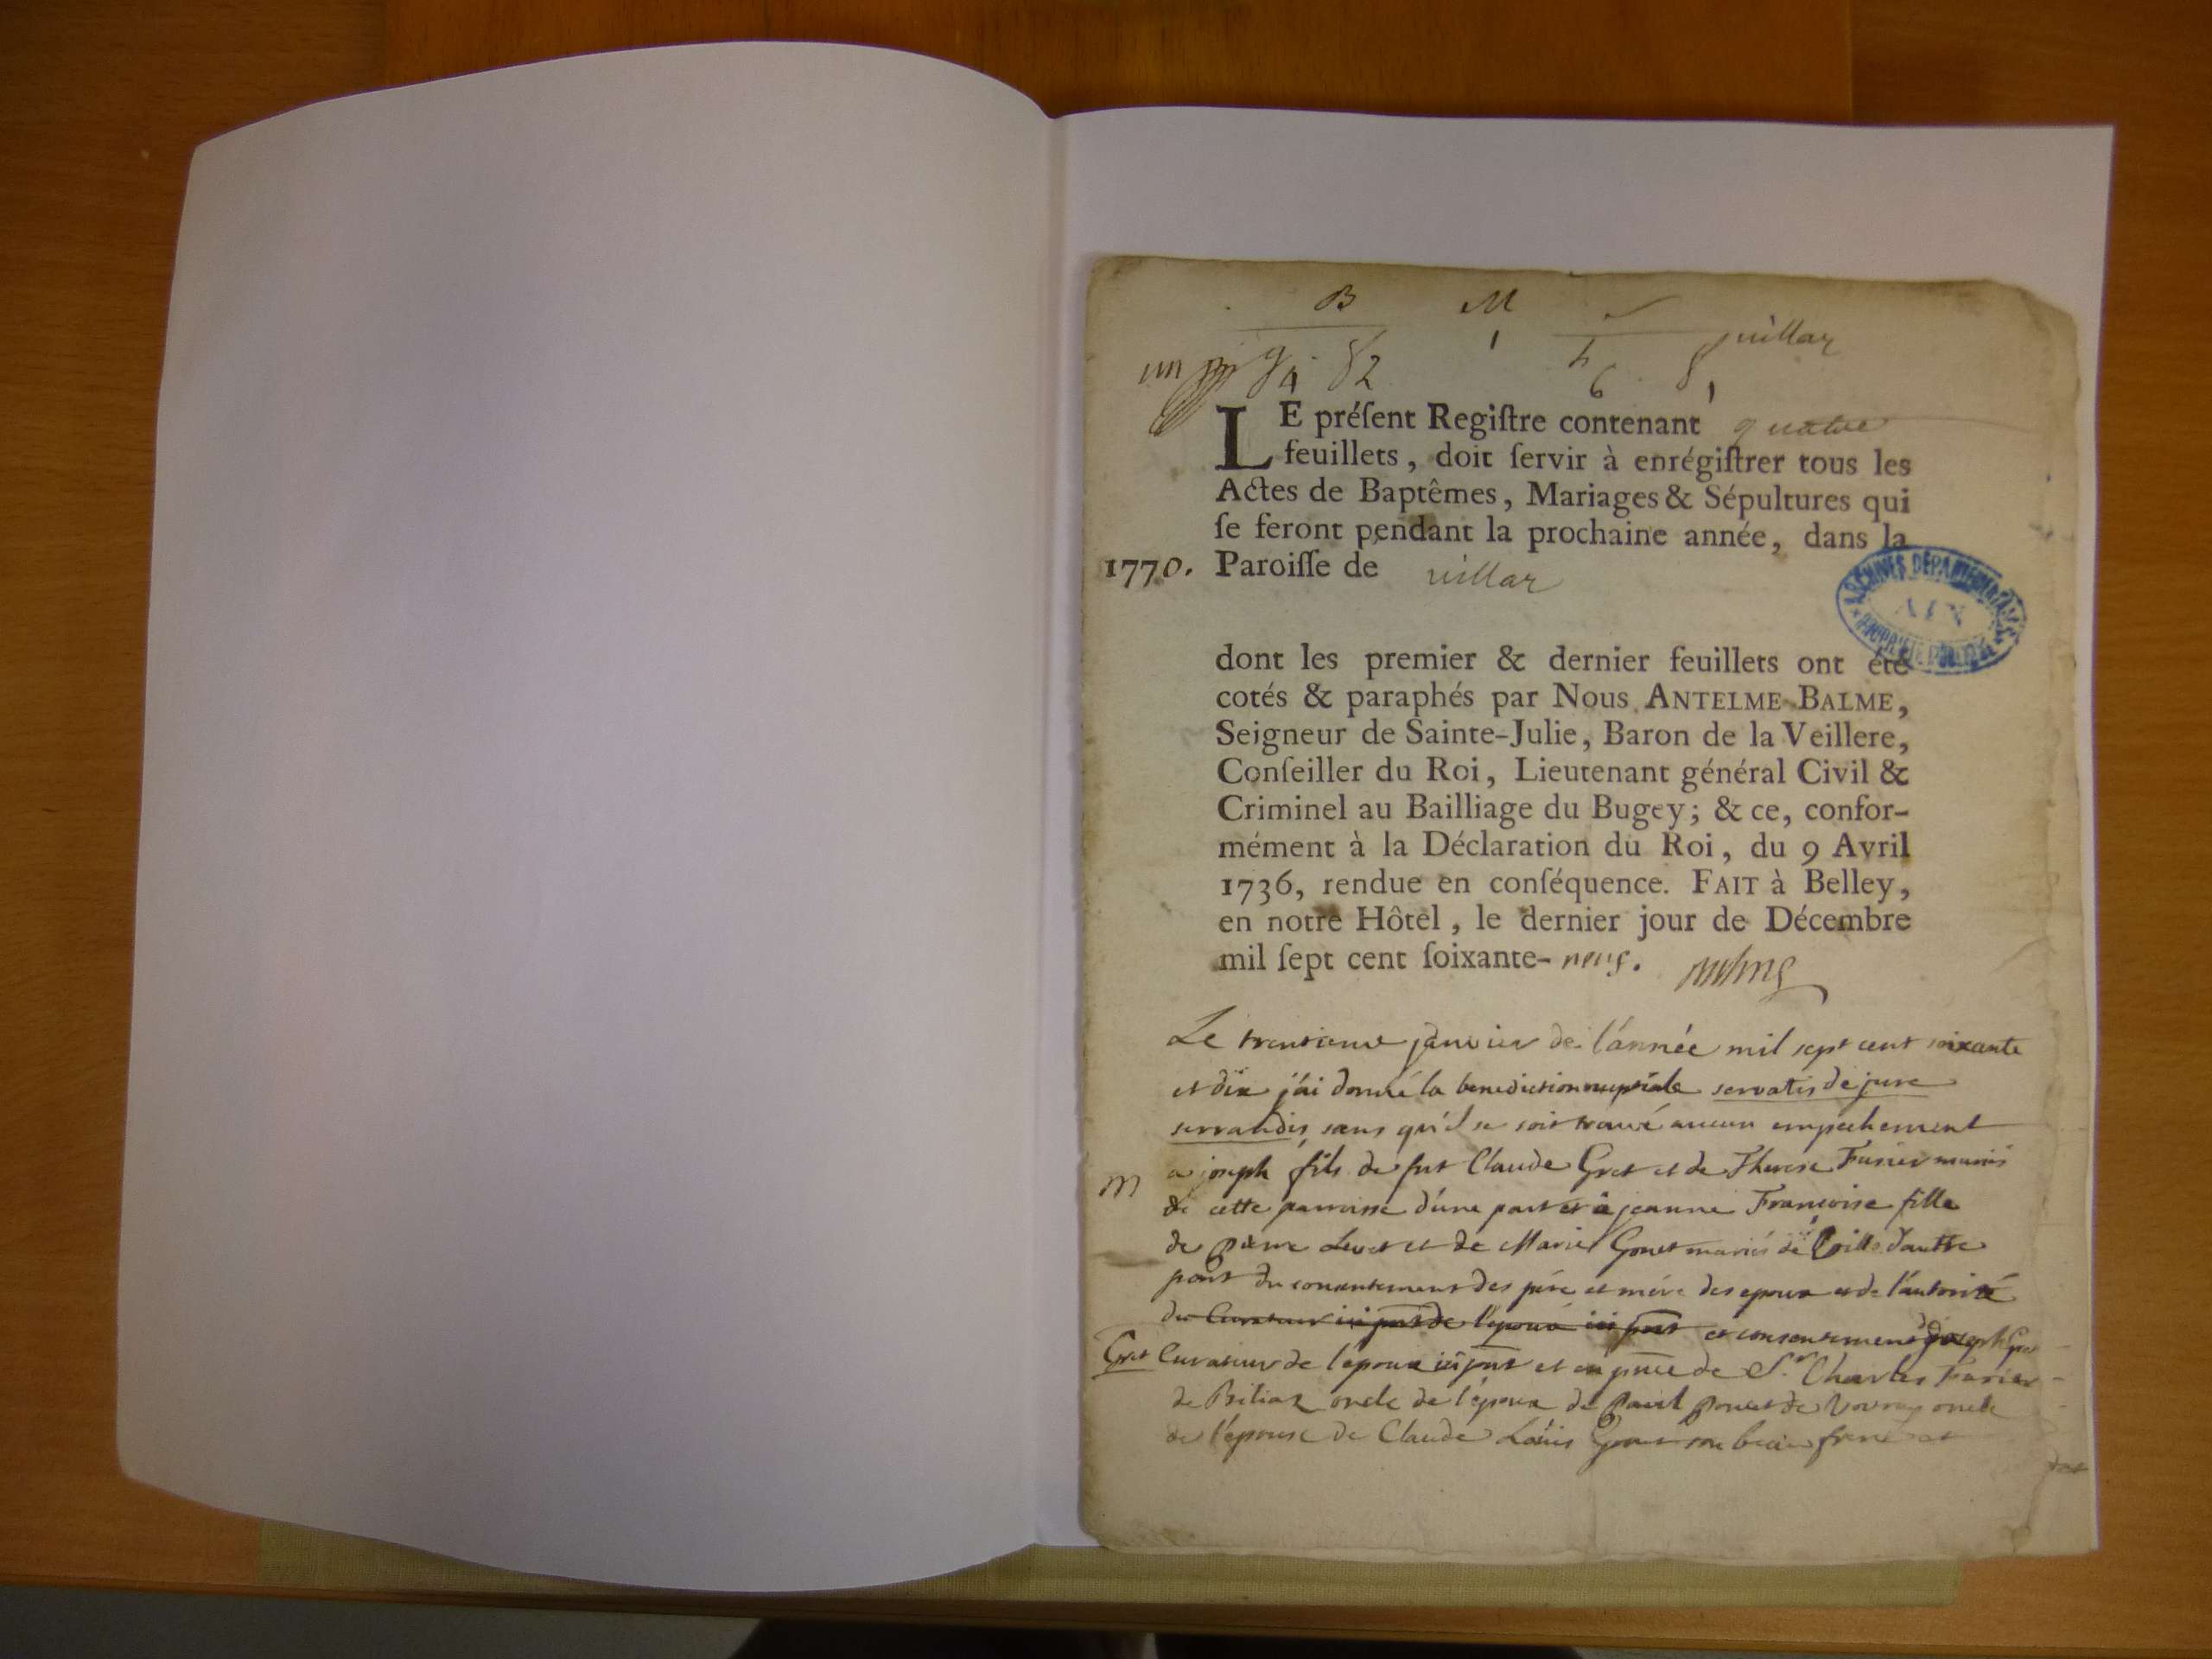 B M
villar
un
g 4 · 82 1 6 1
LE préſent Regiſtre contenant quatre
feuillets, doit ſervir à enrégiſtrer tous les
Actes de Baptêmes, Mariages & Sépultures qui
ſe feront pendant la prochaine année, dans la
1770. Paroiſſe de villar
ARCHIVES DÉPARTEMENTALES
AIN
PROPRIÉTÉ PUBLIQUE
dont les premier & dernier feuillets ont été
cotés & paraphés par Nous ANTELME BALME,
Seigneur de Sainte-Julie, Baron de la Veillere,
Conſeiller du Roi, Lieutenant général Civil &
Criminel au Bailliage du Bugey; & ce, confor-
mément à la Déclaration du Roi, du 9 Avril
1736, rendue en conſéquence. FAIT à Belley,
en notre Hôtel, le dernier jour de Décembre
mil ſept cent ſoixante- neuf.
Le trentieme janvier de l'année mil sept cent soixante
et dix j'ai donné la benediction nuptiale servatis de jure
servandis, sans qu'il se soit trouvé aucun empechement
M a joseph fils de fut Claude Gret et de Therese Fusier mariés
de cette parroisse d'une part et à jeanne Francoise fille
de pierre et de Marie Gonet mariés de d'autre
part du consentement des père et mère des epoux et de l'autorité
du Curateur de l'epoux et consentement de joseph
Gret Curateur de l'epoux et en de Sr. Charles Fusier
de Biliaz oncle de l'époux de paul de Vovray oncle
de l'epouse de Claude Loüis son beau frere et